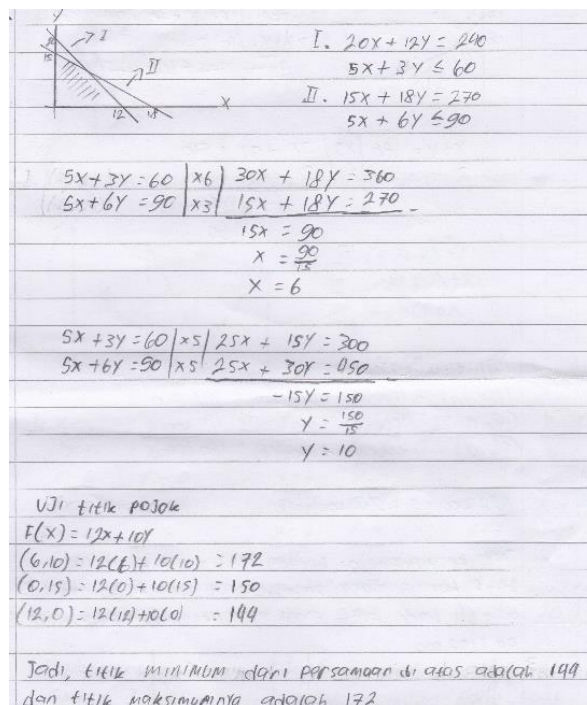 Y
I
20
15
II
12
18
X
I. 20X + 12Y = 240
5X + 3Y ≤ 60
II. 15X + 18Y = 270
5X + 6Y ≤ 90
5X + 3Y = 60 | x6 | 30X + 18Y = 360
5X + 6Y = 90 | x3 | 15X + 18Y = 270 -
15X = 90
X = 90/15
X = 6
5X + 3Y = 60 | x5 | 25X + 15Y = 300
5X + 6Y = 90 | x5 | 25X + 30Y = 450 -
-15Y = 150
Y = 150/15
Y = 10
UJI titik pojok
F(X) = 12X + 10Y
(6,10) = 12(6) + 10(10) = 172
(0,15) = 12(0) + 10(15) = 150
(12,0) = 12(12) + 10(0) = 144
Jadi, titik MINIMUM dari persamaan di atas adalah 144
dan titik maksimumnya adalah 172